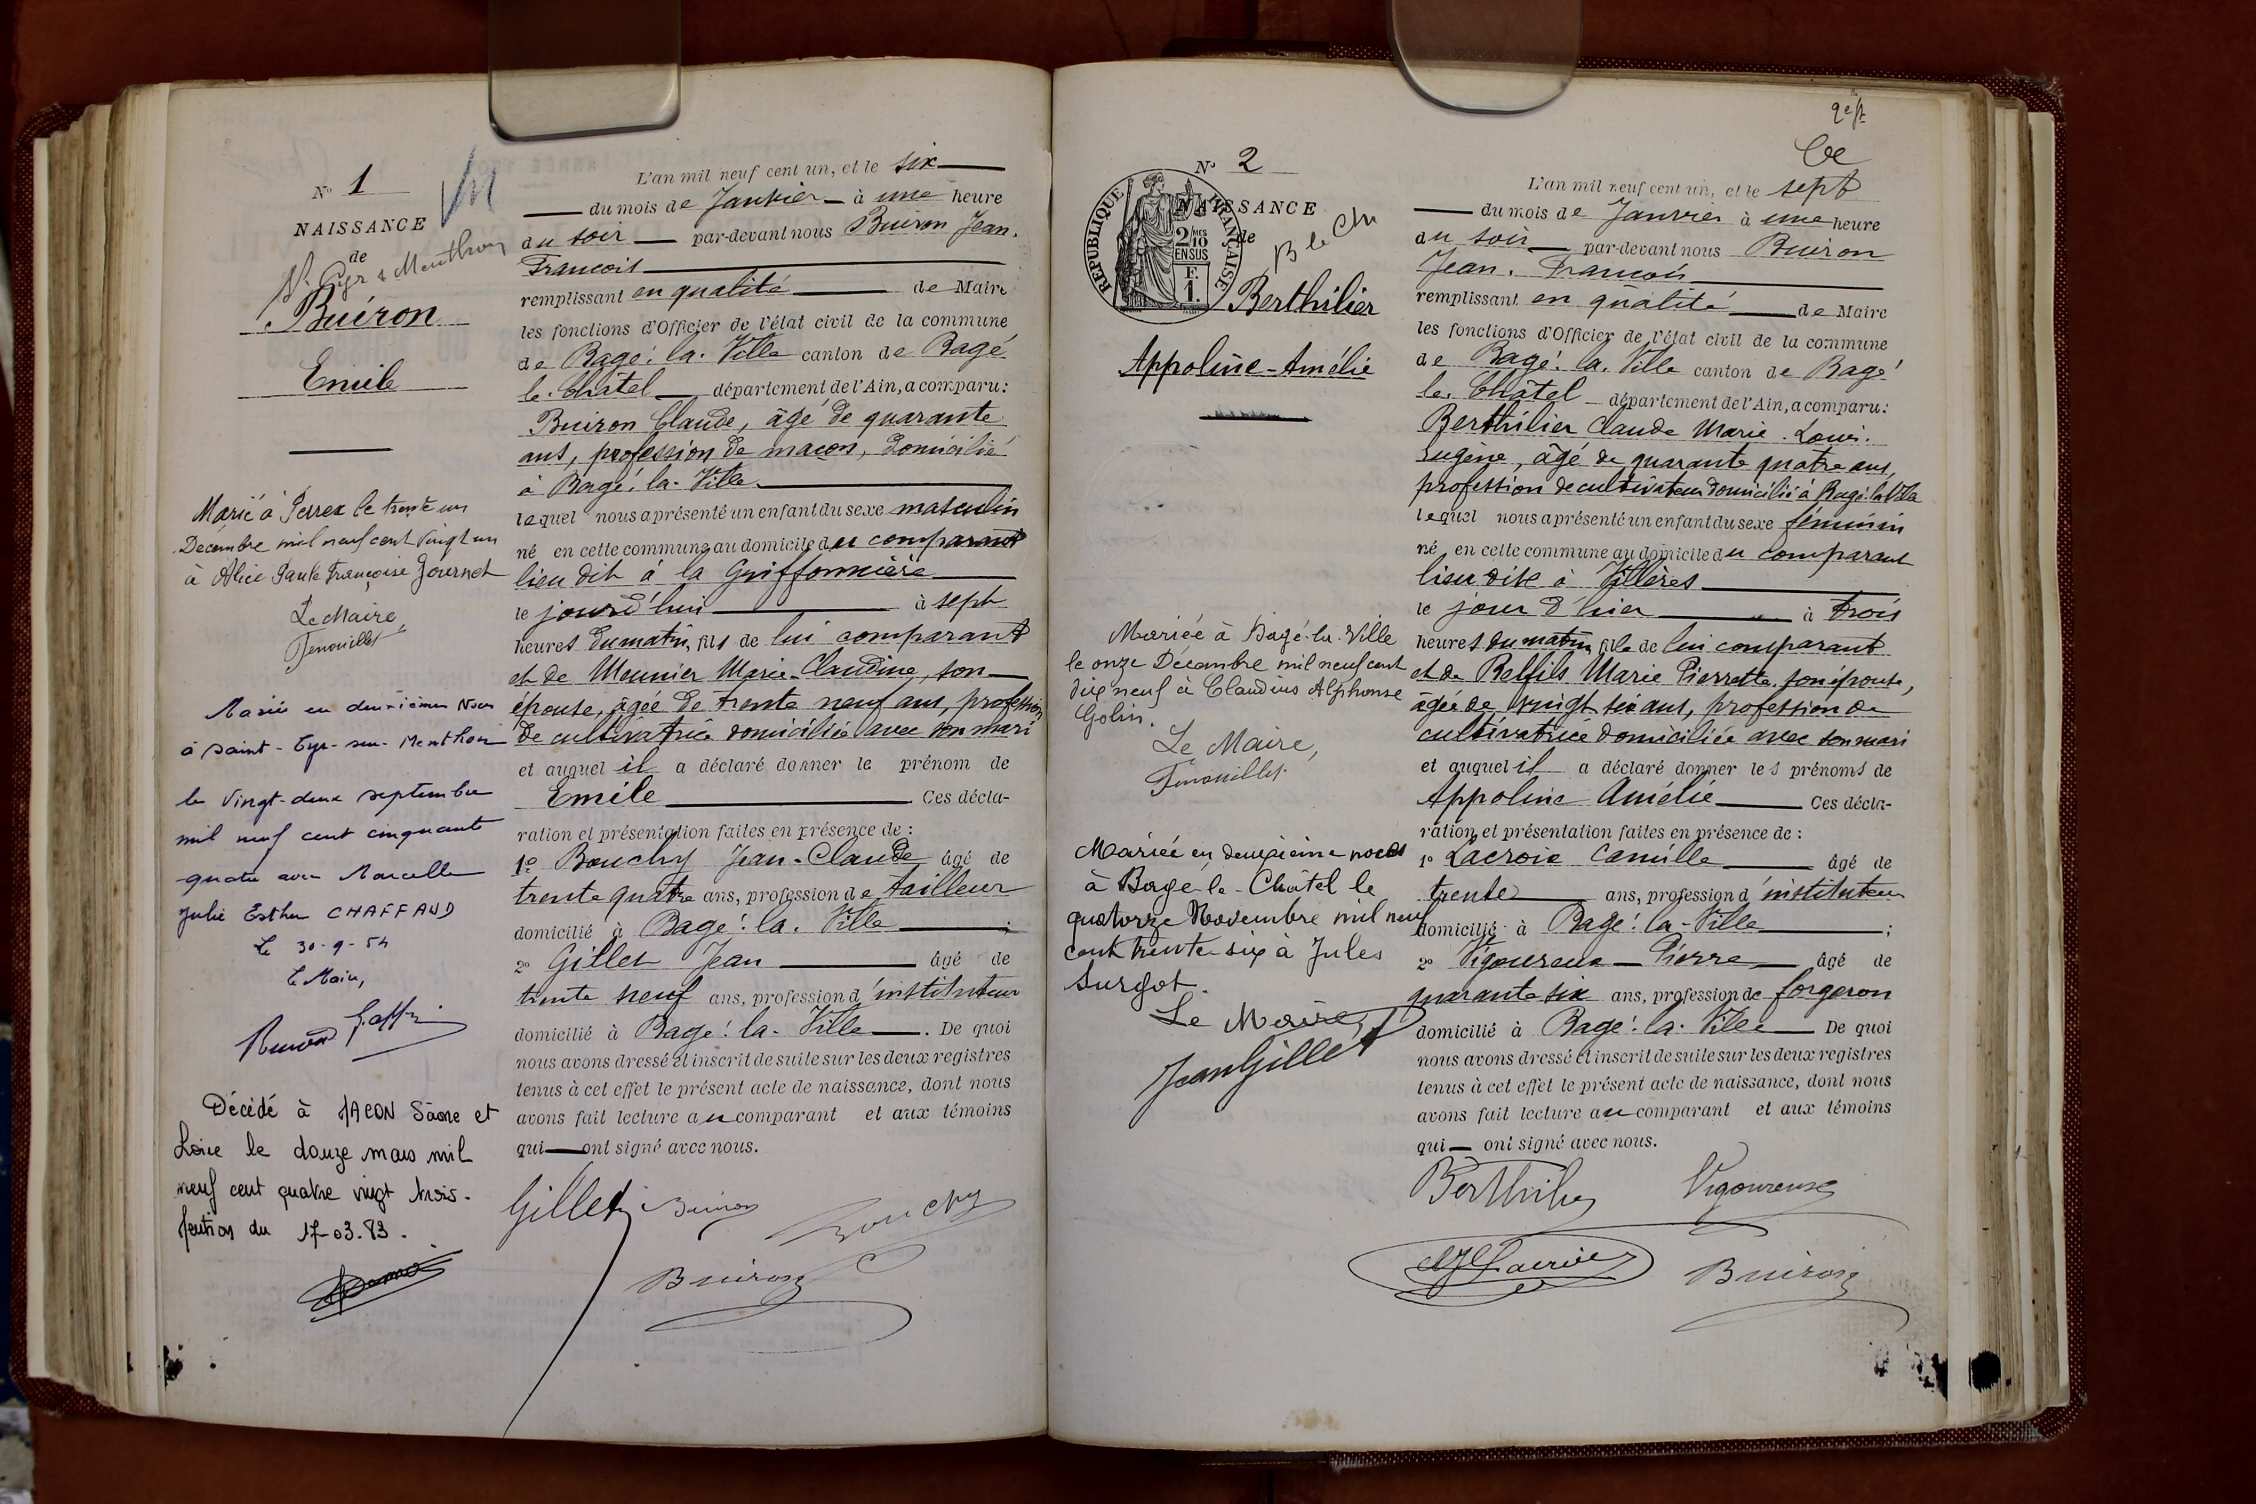 N° 1
NAISSANCE
de
St Cyr s Menthon
Buiron
Emile
Marié à Perrex le trente un
Decembre mil neuf cent vingt un
à Alice Paule Françoise Journet
Le Maire,
Fenouillet
Mariée en deuxièmes Noces
à Saint-Cyr-sur-Menthon
le vingt-deux septembre
mil neuf cent cinquante
quatre avec Marcelle
Julie Esther CHAFFAUD
Le 30-9-54
Le Maire,
Décédé à MACON Saône et
Loire le douze mars mil
neuf cent quatre vingt trois.
Mention du 17-03.83.
L'an mil neuf cent un, et le six
du mois de Janvier à une heure
du soir par-devant nous Buiron Jean.
Francois
remplissant en qualité de Maire
les fonctions d'Officier de l'état civil de la commune
de Bagé. la. Ville canton de Bagé
le. Châtel département de l'Ain, a comparu:
Buiron Claude, âgé de quarante
ans, profession de maçon, domicilié
à Bagé. la. Ville
lequel nous a présenté un enfant du sexe masculin
né en cette commune au domicile du comparant
lieu dit à la Griffonnière
le jourd'hui à sept
heures du matin, fils de lui comparant
et de Meunier Marie-Claudine, son
épouse, âgée de trente neuf ans, profession
de cultivatrice domiciliée avec son mari
et auquel il a déclaré donner le prénom de
Emile Ces décla-
ration et présentation faites en présence de :
1° Bouchy Jean-Claude âgé de
trente quatre ans, profession de tailleur
domicilié à Bagé. la. Ville ;
2° Gillet Jean âgé de
trente neuf ans, profession d'instituteur
domicilié à Bagé. la. Ville . De quoi
nous avons dressé et inscrit de suite sur les deux registres
tenus à cet effet le présent acte de naissance, dont nous
avons fait lecture au comparant et aux témoins
qui ont signé avec nous.
Gillet Buiron Bouchy
Buiron
N° 2
NAISSANCE
de
RÉPUBLIQUE FRANÇAISE
2/10 MES
EN SUS
F.
1.
B le Ch
Berthilier
Appoline-Amélie
Mariée à Bagé-la-Ville
le onze Décembre mil neuf cent
dix neuf à Claudius Alphonse
Golin.
Le Maire,
Fenouillet
Mariée en deuxième noces
à Bagé-le-Châtel le
quatorze Novembre mil neuf
cent trente six à Jules
Surgot.
Le Maire,
Jean Gillet
L'an mil neuf cent un, et le sept
du mois de Janvier à une heure
du soir par-devant nous Buiron
Jean. Francois
remplissant en qualité de Maire
les fonctions d'Officier de l'état civil de la commune
de Bagé. la. Ville canton de Bagé
le. Châtel département de l'Ain, a comparu:
Berthilier Claude Marie. Louis.
Eugène, âgé de quarante quatre ans,
profession de cultivateur domicilié à Bagé. la Ville
lequel nous a présenté un enfant du sexe féminin
né en cette commune au domicile du comparant
lieu dit à Villères
le jour d'hier à trois
heures du matin, fille de lui comparant
et de Belfils Marie Pierrette son épouse,
âgée de vingt six ans, profession de
cultivatrice domiciliée avec son mari
et auquel il a déclaré donner les prénoms de
Appoline Amélie Ces décla-
ration et présentation faites en présence de :
1° Lacroix Camille âgé de
trente ans, profession d'instituteur
domicilié à Bagé. la-Ville ;
2° Vigoureux Pierre âgé de
quarante six ans, profession de forgeron
domicilié à Bagé. la. Ville De quoi
nous avons dressé et inscrit de suite sur les deux registres
tenus à cet effet le présent acte de naissance, dont nous
avons fait lecture au comparant et aux témoins
qui ont signé avec nous.
Berthilier Vigoureux
Lacroix Buiron